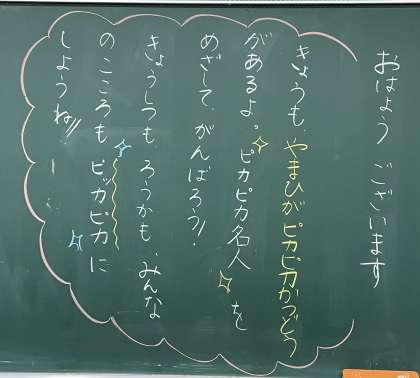 おはよう ございます
きょうも、やまひがピカピカかつどう
があるよ。ピカピカ名人を
めざして、がんばろう!
きょうしつも、ろうかも、みんな
のこころも ピッカピカに
しようね!!